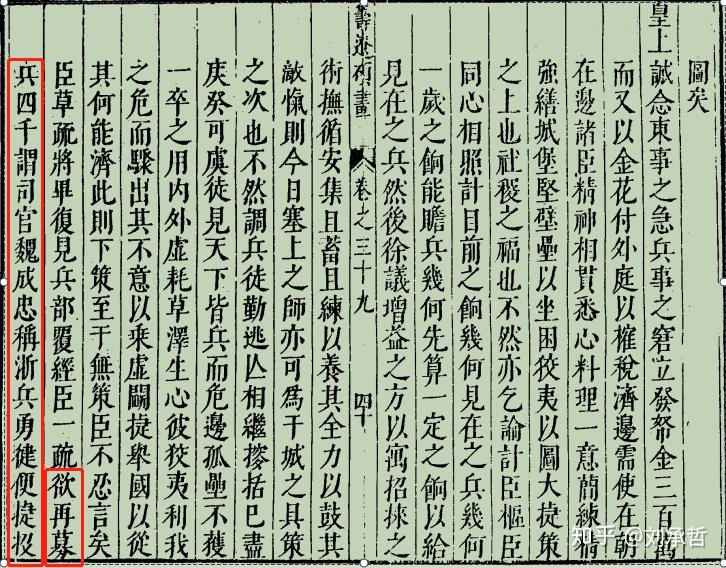 圖矣
皇上誠念東事之急兵事之窘立發帑金三百萬
而又以金花付外庭以榷稅濟邊需使在朝
在邊諸臣精神相貫悉心料理一意蕳練精
強繕城堡堅壁壘以坐困狡夷以圖大捷策
之上也社稷之福也不然亦乞諭計臣樞臣
同心相照計目前之餉幾何見在之兵幾何
一歲之餉能贍兵幾何先算一定之餉以給
見在之兵然後徐議增益之方以寓招捒之
籌遼碩畫 卷之三十九 四十
術撫循安集且蓄且練以養其全力以鼓其
敵愾則今日塞上之師亦可為干城之具策
之次也不然調兵徒勤逃亾相繼摉括已盡
庚癸可虞徒見天下皆兵而危邊孤壘不獲
一卒之用內外虛耗草澤生心彼狡夷利我
之危而驟出其不意以乘虛鬬捷舉國以從
其何能濟此則下策至于無策臣不忍言矣
臣草疏將畢復見兵部覆經臣一疏欲再募
兵四千謂司官魏成忠稱浙兵勇健便捷投
知乎 @刘承哲